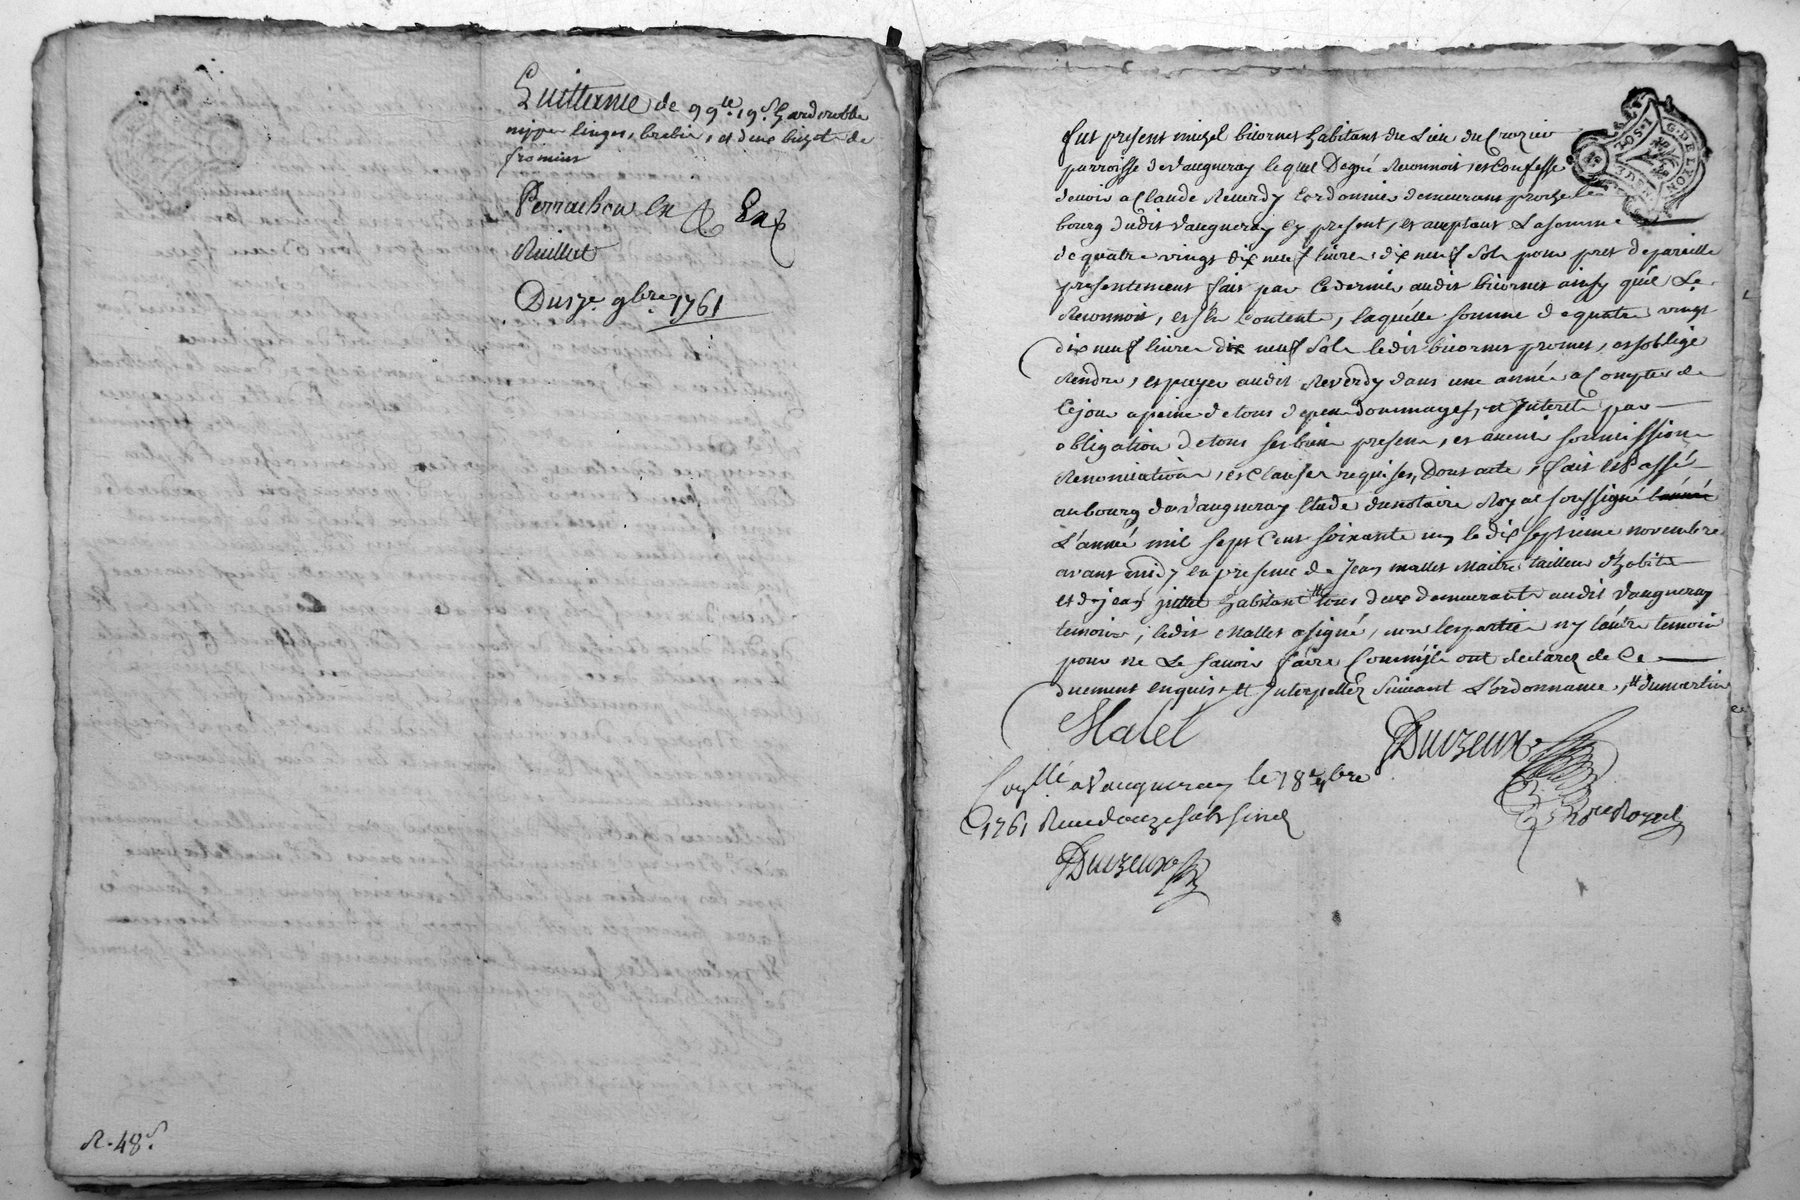 Quittance de 99ᵗᵗ 19ˢ garderobbe
nippe linges, brebis, et deux bichet de
froment
Perrachon
Du 17ᵉ 9bre 1761
R. 48ˢ
G. DE LYON
Fut present michel bicornet habitant du Lieu du Crozier
parroisse de Vaugneray lequel Degré Reconnoit, et Confesse
devoir a Claude Reverdy Cordonnier demeurant proche le
bourg dudit Vaugneray cy present, et acceptant La somme
de quatre vingt dix neuf livres dix neuf Sols pour pret de pareille
presentement fait par Ce dernier audit bicornet ainsy quil Le
Reconnoit, et s'en Contente, laquelle somme de quatre vingt
dix neuf livres dix neuf Sols ledit bicornet promet, et s'oblige
Rendre, et payer audit Reverdy dans une année a Compter de
Ce jour a peine de tous depens dommages, et Interets par
obligation de tous ses biens presens, et avenir soumissions
Renonciations, et Clauses requises, Dont acte, fait et Passé
au bourg de Vaugneray Etude du notaire Royal soussigné l'année
L'année mil sept Cent soixante un le dix septieme novembre
avant midy en presence de Jean mallet Maitre tailleur d'habits
et de jean habitant tous deux demeurants audit Vaugneray
temoins, ledit Mallet a signé, non les parties ny l'autre temoin
pour ne Le Savoir faire Comm'ils ont declarez de Ce
duement enquis et Interpellés Suivant L'ordonnance,
Malet
Duizeux
Nʳᵉ Royal
Con̄llé a Vaugneray le 18ᵉ 9bre
1761 Reçu douze sols six d
Duizeux